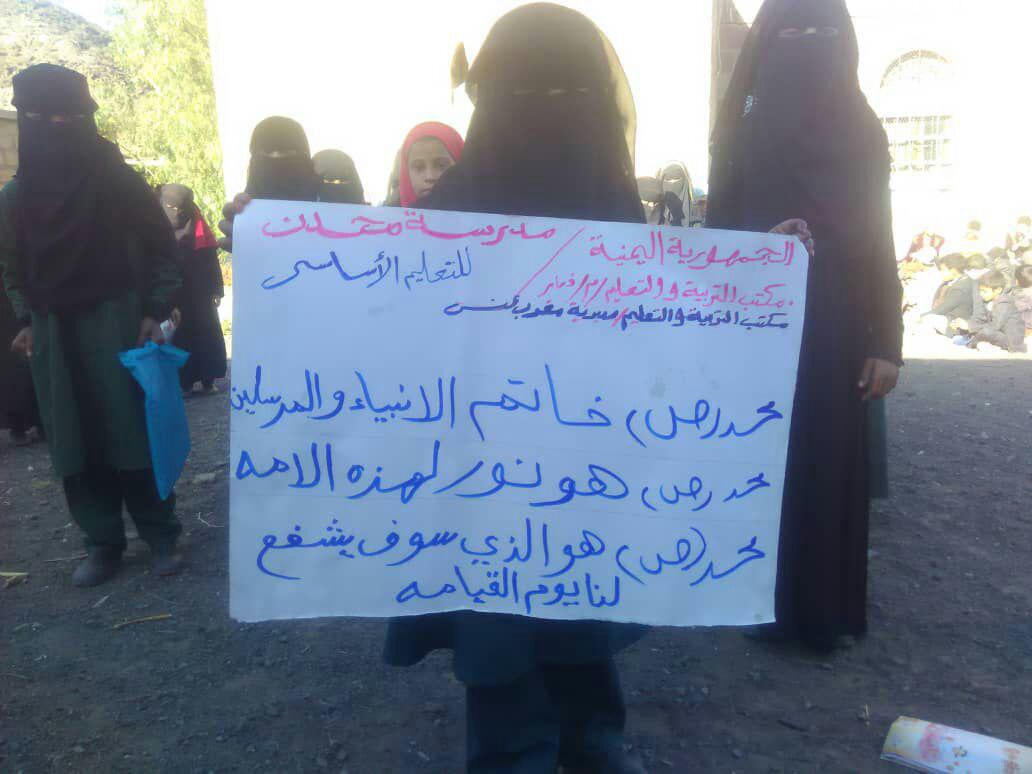 الجمهورية اليمنية / مدرسة محدن
مكتب التربية والتعليم /م/ ذمار / للتعليم الأساسي
مكتب التربية والتعليم/مديرية مغرب عنس
محمد (ص) خاتم الانبياء والمرسلين
محمد (ص) هو نور لهذه الامه
محمد (ص) هو الذي سوف يشفع
لنا يوم القيامه